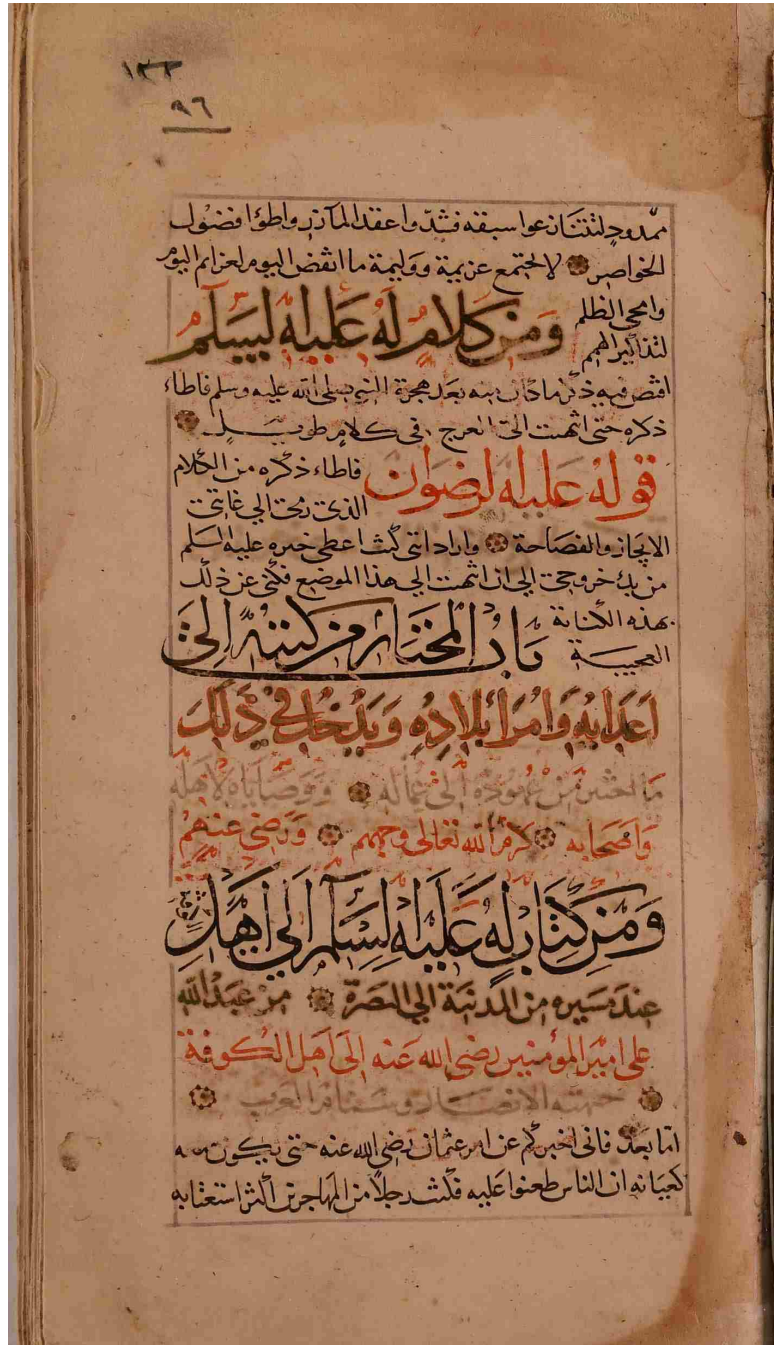 ١٣٣
٩٦
ممدود لتتنازعوا سبقه فشدوا عقد المآزر واطووا فضول
الخواصر لا تجتمع عزيمة ووليمة ما انقض النوم لعزائم اليوم
وامحى الظلم
لتذاكير الهمم
ومن كلام له عليه السلم
اقتص فيه ذكر ما كان منه بعد هجرة النبي صلى الله عليه وسلم فاطاء
ذكره حتى انتهيت الى العرج في كلام طويل
قوله عليه الرضوان
فاطاء ذكره من الكلام
الذي رمى الى غايتي
الايجاز والفصاحة واراد اني كنت اعطى خبره عليه السلم
من بدء خروجي الى ان انتهيت الى هذا الموضع فكنى عن ذلك
بهذه الكناية
العجيبة
باب المختار من كتبه الى
اعدايه وامراء بلاده ويدخل في ذلك
ما اختير من عهوده الى عماله ووصاياه لاهله
واصحابه كرم الله تعالى وجههم ورضى عنهم
ومن كتاب له عليه السلم الى اهل
عند مسيره من المدينة الى البصرة من عبد الله
على امير المؤمنين رضى الله عنه الى اهل الكوفة
جبهة الانصار وسنام العرب
اما بعد فانى اخبركم عن امر عثمان رضى الله عنه حتى يكون سمعه
كعيانه ان الناس طعنوا عليه فكنت رجلا من المهاجرين اكثر استعتابه